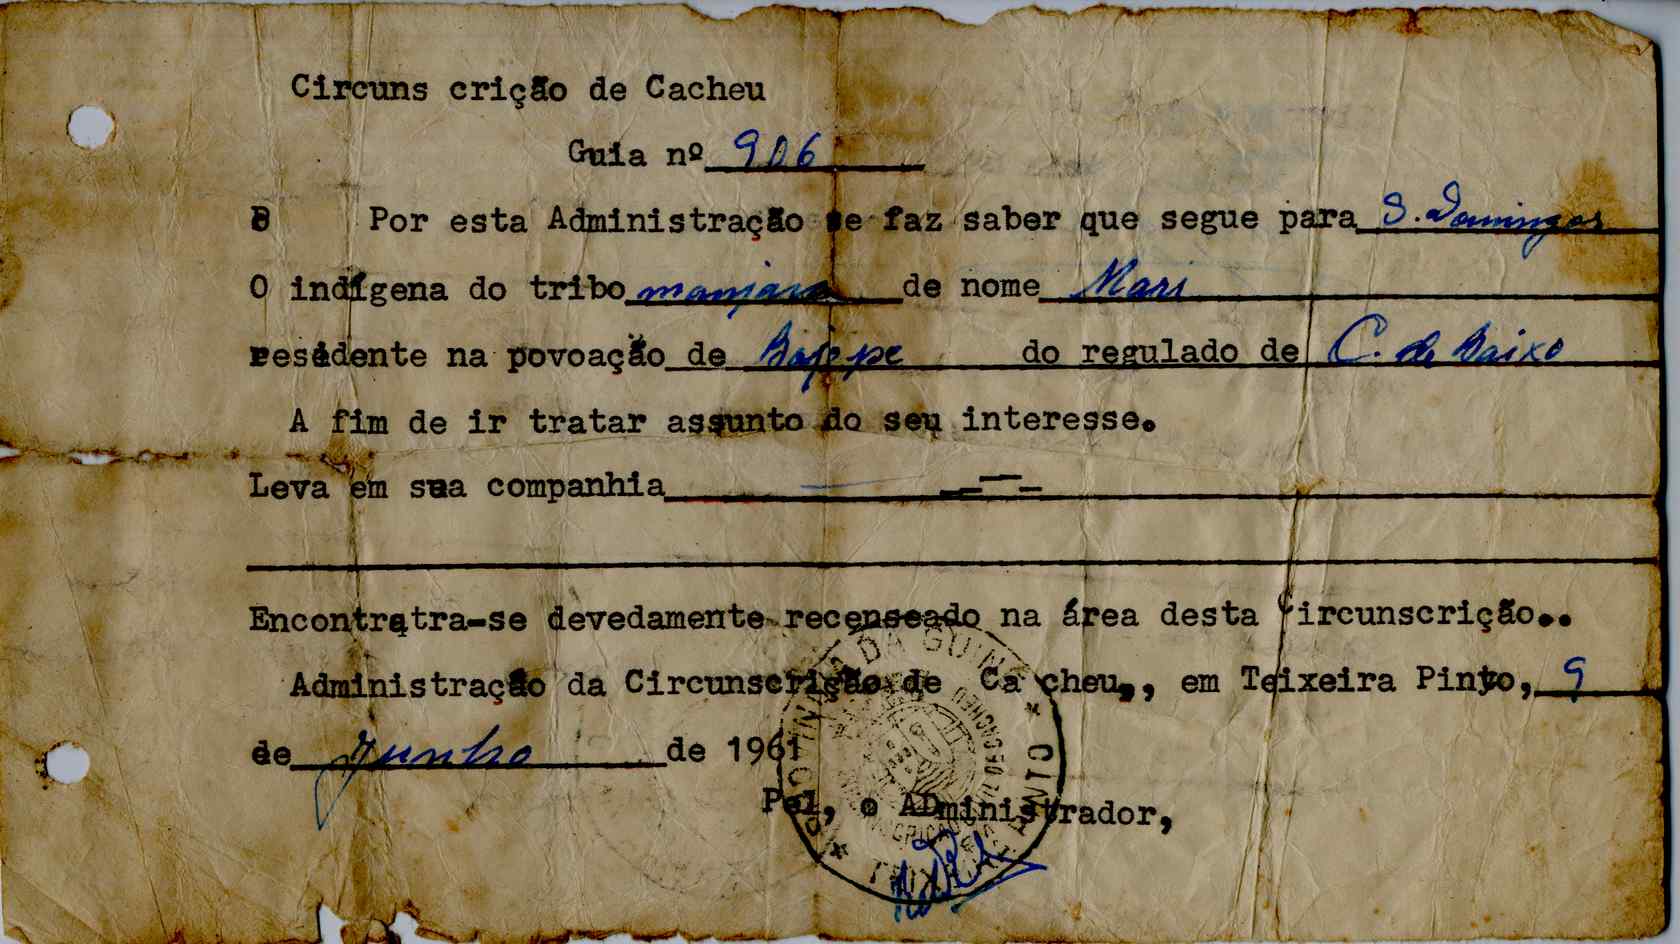 Circuns crição de Cacheu
Guia nº 906
Por esta Administração se faz saber que segue para S. Domingos
O indígena do tribo manjaca de nome Mari
residente na povoação de Bajope do regulado de C. de Baixo
A fim de ir tratar assunto do seu interesse.
Leva em sua companhia
Encontratra-se devedamente recenseado na área desta Circunscrição..
Administração da Circunscrição de Ca cheu,, em Teixeira Pinto, 9
de Junho de 1961
Pel, o ADministrador,
PROVÍNCIA DA GUINÉ